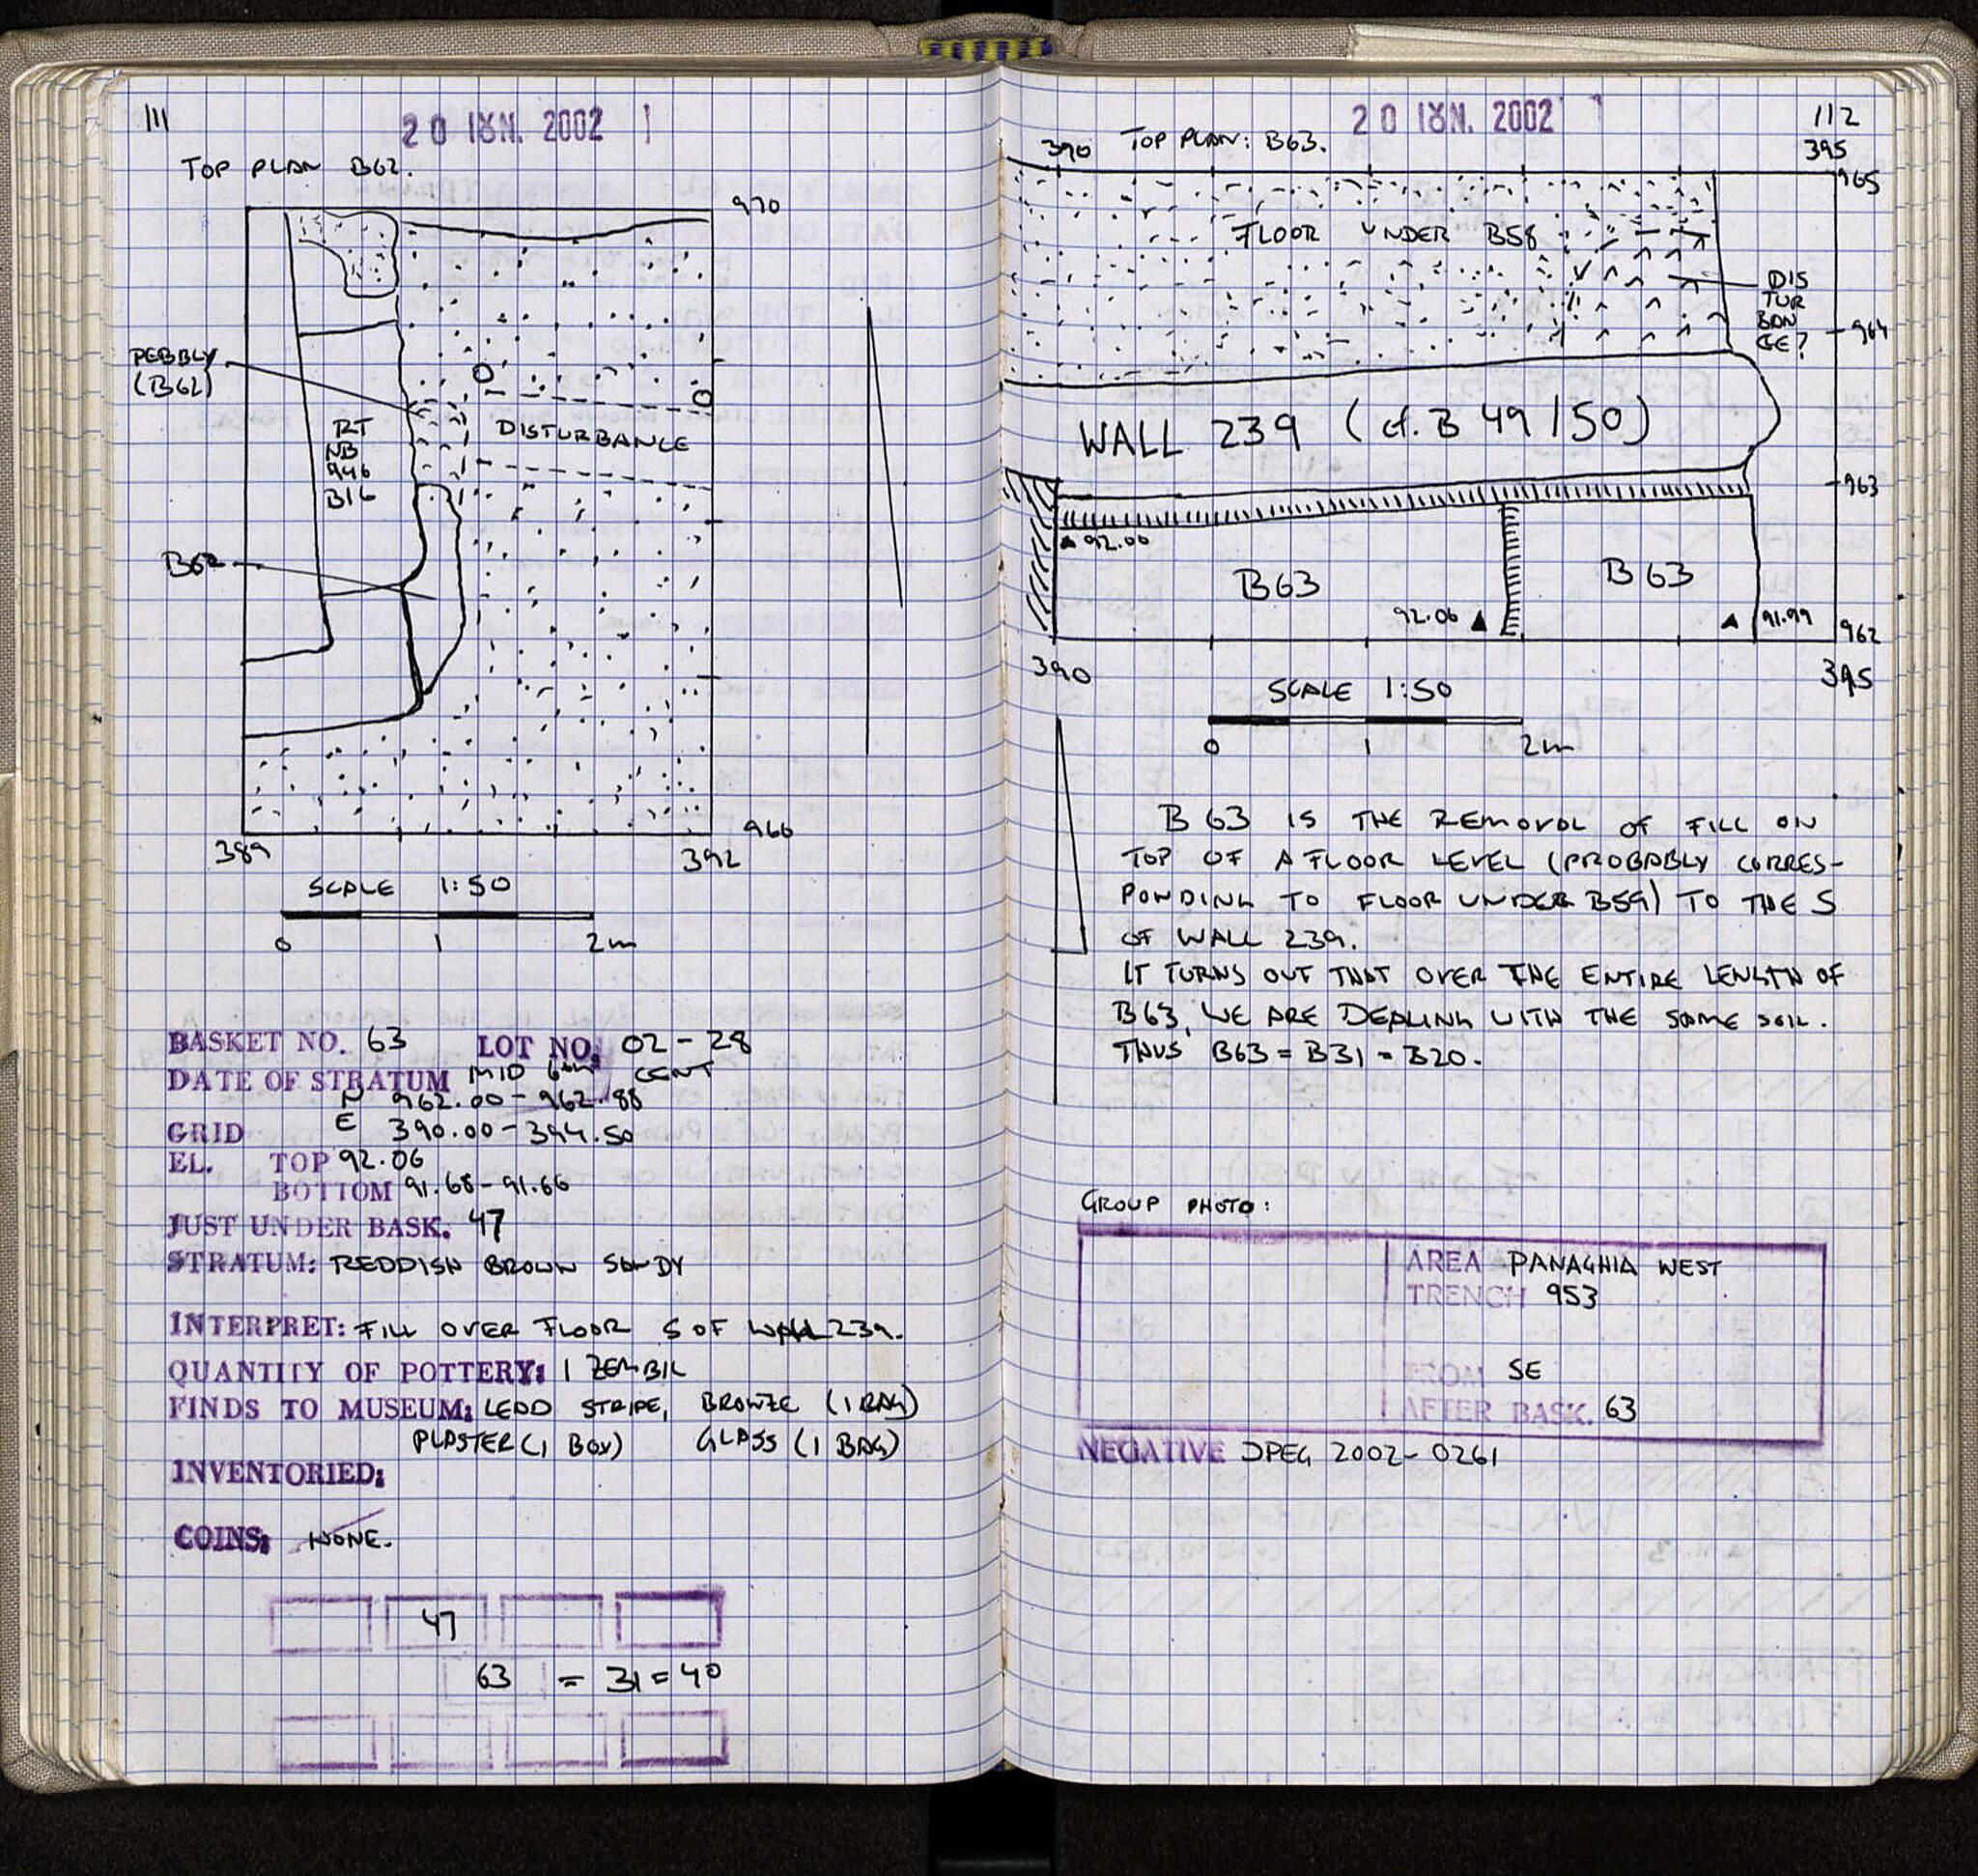 111
20 IΟΥN. 2002
TOP PLAN B62.
970
PEBBLY
(B62)
RT
NB
946
B16
DISTURBANCE
B62
966
389
392
SCALE 1:50
0 1 2m
BASKET NO. 63 LOT NO. 02-28
DATE OF STRATUM MID 6th CENT
N 962.00-962.88
GRID E 390.00-394.50
EL. TOP 92.06
BOTTOM 91.68-91.66
JUST UNDER BASK. 47
STRATUM: REDDISH BROWN SANDY
INTERPRET: FILL OVER FLOOR S OF WALL 239.
QUANTITY OF POTTERY: 1 ZEMBIL
FINDS TO MUSEUM: LEAD STRIPE, BRONZE (1 BAG)
PLASTER (1 BOX) GLASS (1 BAG)
INVENTORIED:
COINS: NONE.
47
63 = 31 = 40
20 IΟΥN. 2002
112
TOP PLAN: B63.
390
395
965
FLOOR UNDER B58
DIS
TUR
BAN
CE?
964
WALL 239 (cf. B 49/50)
963
92.00
B63
B63
92.06
91.99
962
390
395
SCALE 1:50
0 1 2m
B 63 IS THE REMOVAL OF FILL ON
TOP OF A FLOOR LEVEL (PROBABLY CORRES-
PONDING TO FLOOR UNDER B59) TO THE S
OF WALL 239.
IT TURNS OUT THAT OVER THE ENTIRE LENGTH OF
B63, WE ARE DEALING WITH THE SAME SOIL.
THUS B63 = B31 = B20.
GROUP PHOTO:
AREA PANAGHIA WEST
TRENCH 953
FROM SE
AFTER BASK. 63
NEGATIVE DPEG 2002-0261